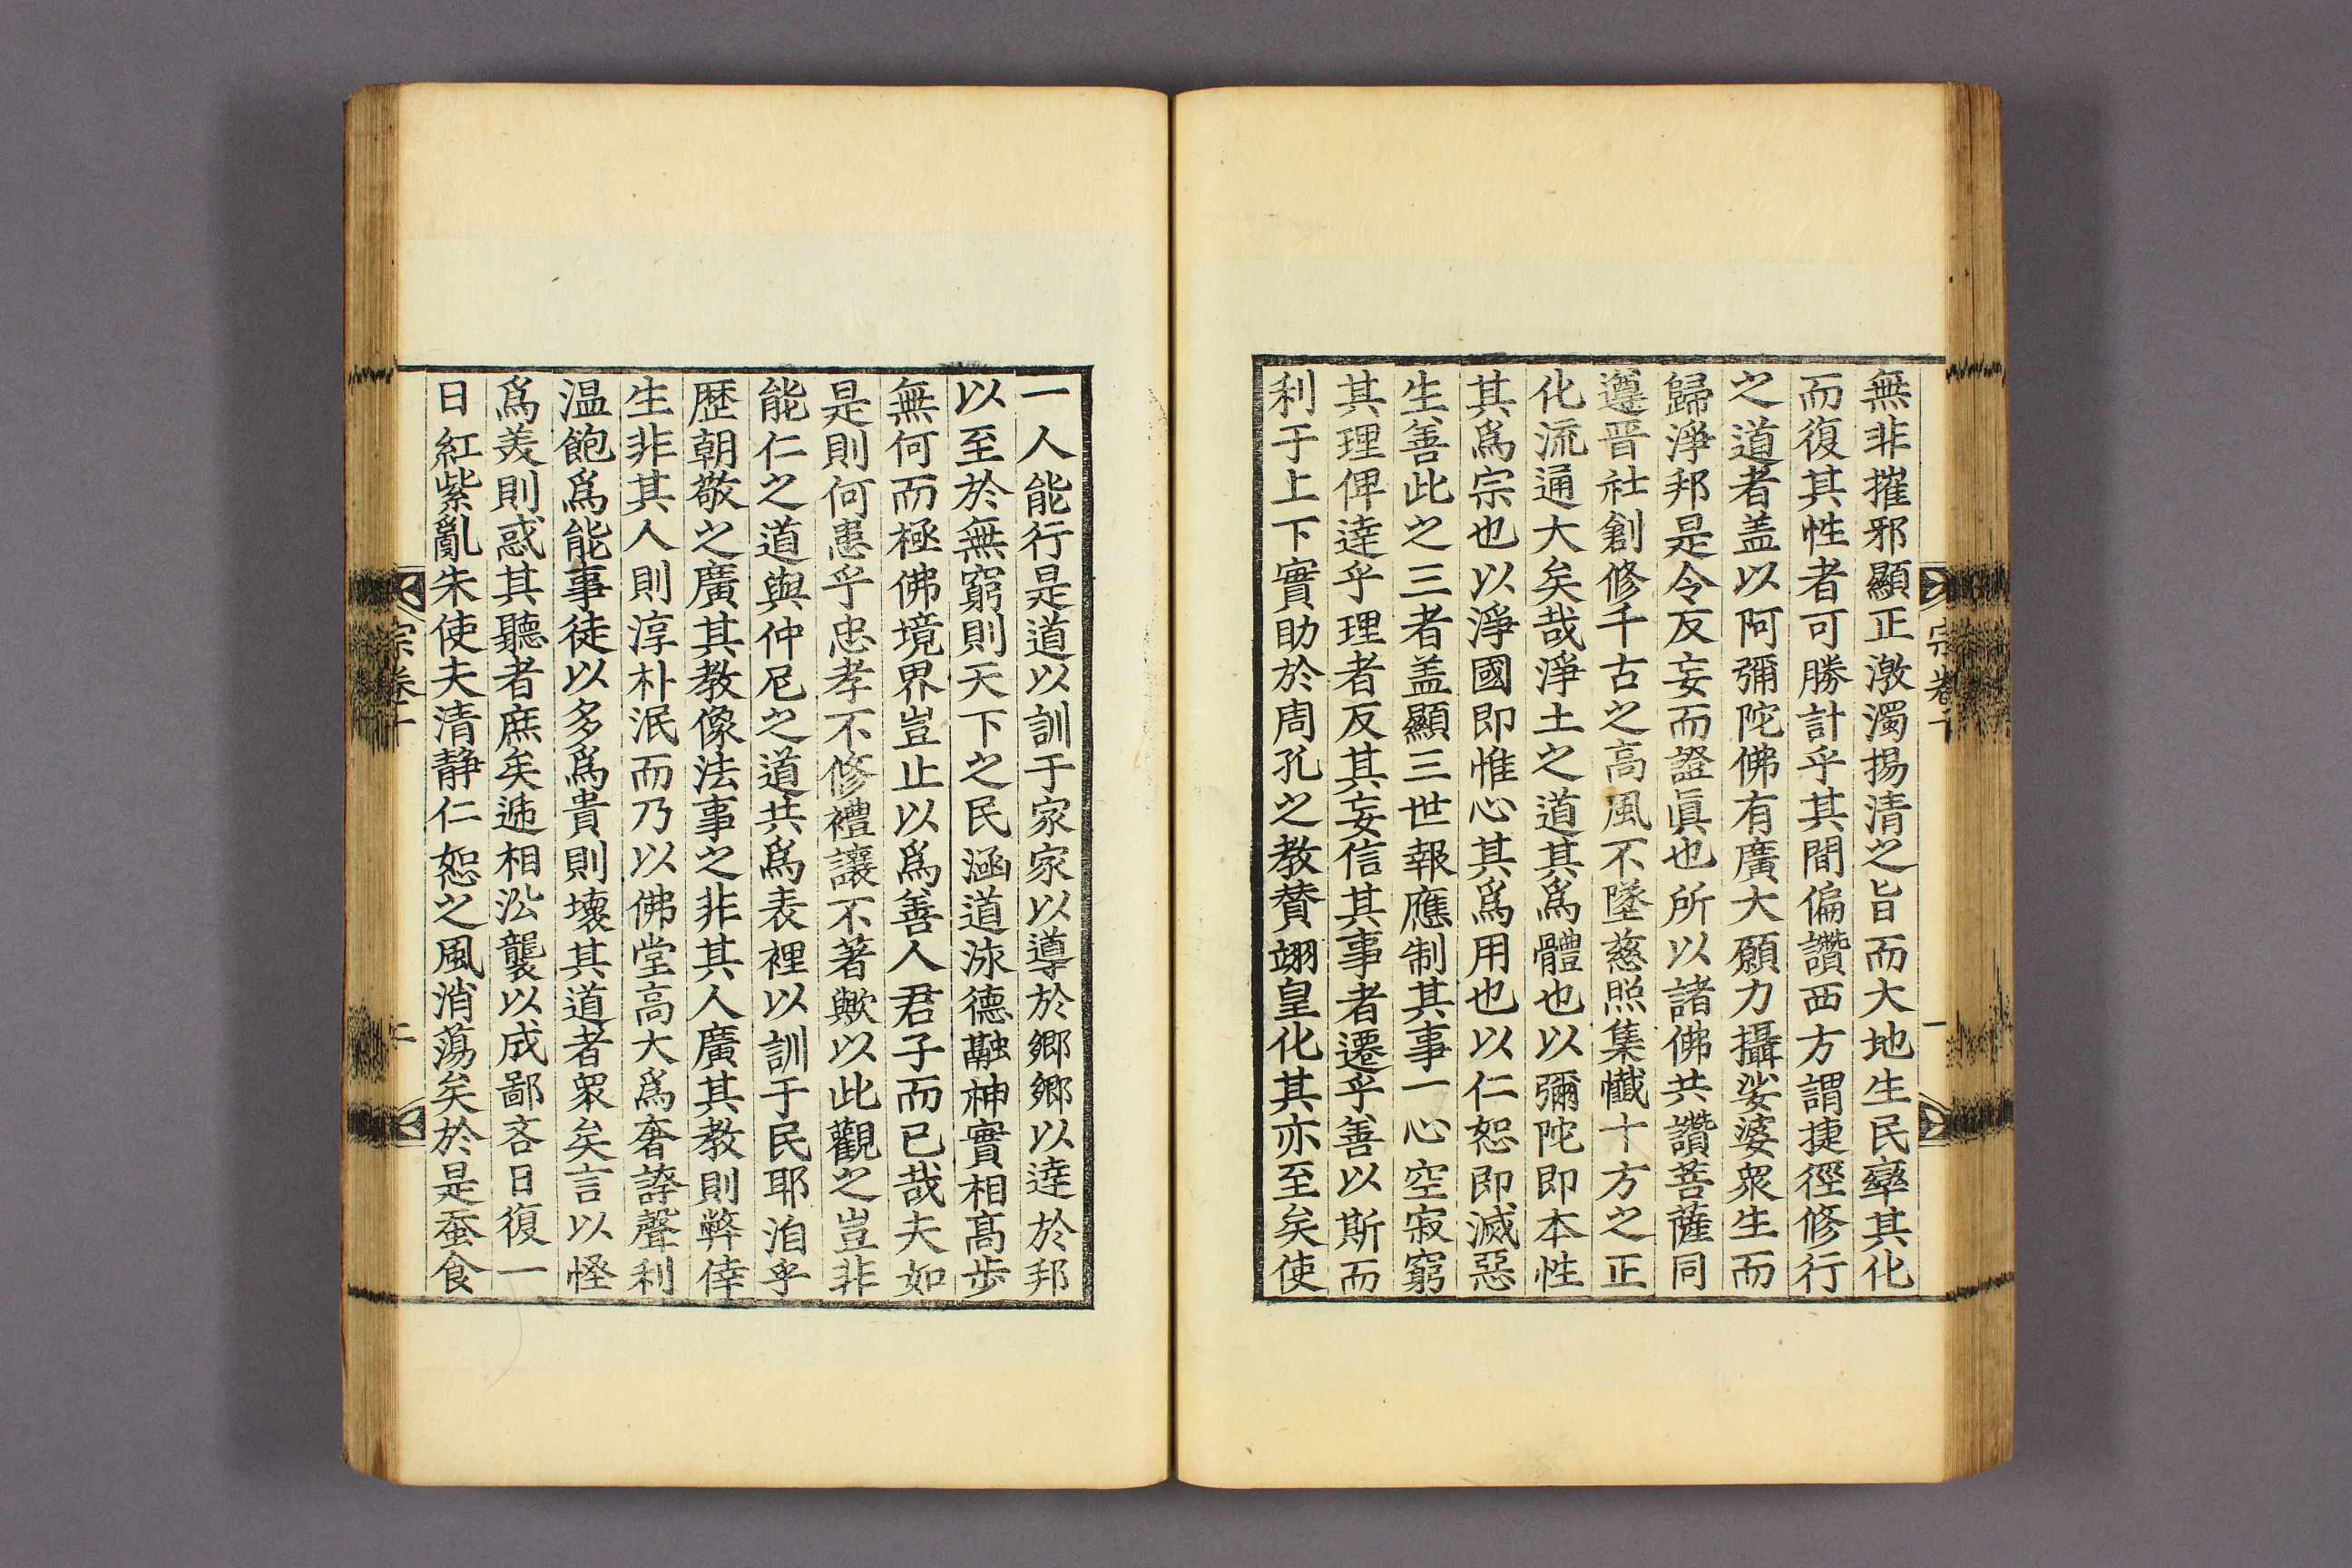 無非摧邪顯正激濁揚清之旨而大地生民率其化
而復其性者可勝計乎其間偏讚西方謂捷徑修行
之道者盖以阿彌陀佛有廣大願力攝娑婆衆生而
歸淨邦是令反妄而證眞也所以諸佛共讚菩薩同
遵晋社創修千古之高風不墜慈照集懺十方之正
化流通大矣哉淨土之道其爲體也以彌陀即本性
其爲宗也以淨國即惟心其爲用也以仁恕即滅惡
生善此之三者盖顯三世報應制其事一心空寂窮
其理俾達乎理者反其妄信其事者遷乎善以斯而
利于上下實助於周孔之教賛翊皇化其亦至矣使
一人能行是道以訓于家家以導於鄉鄉以達於邦
以至於無窮則天下之民涵道泳德融神實相高步
無何而極佛境界豈止以爲善人君子而已哉夫如
是則何患乎忠孝不修禮讓不著歟以此觀之豈非
能仁之道與仲尼之道共爲表裡以訓于民耶洎乎
歷朝敬之廣其教像法事之非其人廣其教則弊倖
生非其人則淳朴泯而乃以佛堂高大爲奢誇聲利
温飽爲能事徒以多爲貴則壞其道者衆矣言以怪
爲羙則惑其聽者庶矣遞相㳂襲以成鄙吝日復一
日紅紫亂朱使夫清静仁恕之風消蕩矣於是蚕食
宗卷十
二